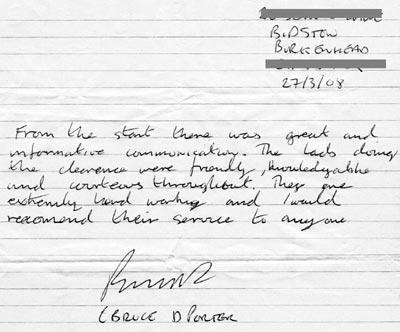 BIDSTON
BIRKENHEAD
27/3/08
From the start there was great and
informative communication. The lads doing
the clearence were friendly, knowledgable
and courteous throughout. They are
extremly hard working and I would
recomend their service to anyone
(BRUCE D PORTER